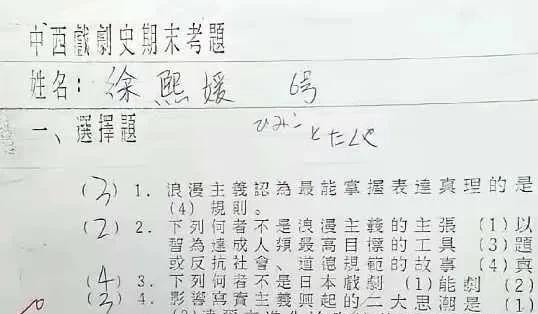 中西戲劇史期末考題
姓名：徐熙媛 6号
一、選擇題
ひみこ と たくや
(3) 1. 浪漫主義認為最能掌握表達真理的是
(4) 規則。
(2) 2. 下列何者不是浪漫主義的主張 (1)以
習為達成人類最高目標的工具 (3)題
或反抗社會、道德規範的故事 (4)真
(4) 3. 下列何者不是日本戲劇 (1)能劇 (2)
(3) 4. 影響寫實主義興起的二大思潮是 (1)